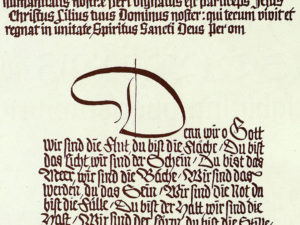 humanitatis nostræ fieri dignatus est particeps Jesus
Christus Filius tuus Dominus noster: qui tecum vivit et
regnat in unitate Spiritus Sancti Deus per om
Denn wir o Gott
wir sind die Flut du bist die Fläche / Du bist
das Licht wir sind der Schein / Du bist das
Meer, wir die Bäche, Wir sind das
werden, du das Sein / Wir sind die Not du
bist die Fülle / Du bist der Halt, wir sind die
Hast / Wir sind der Lärm, du bist die Stille